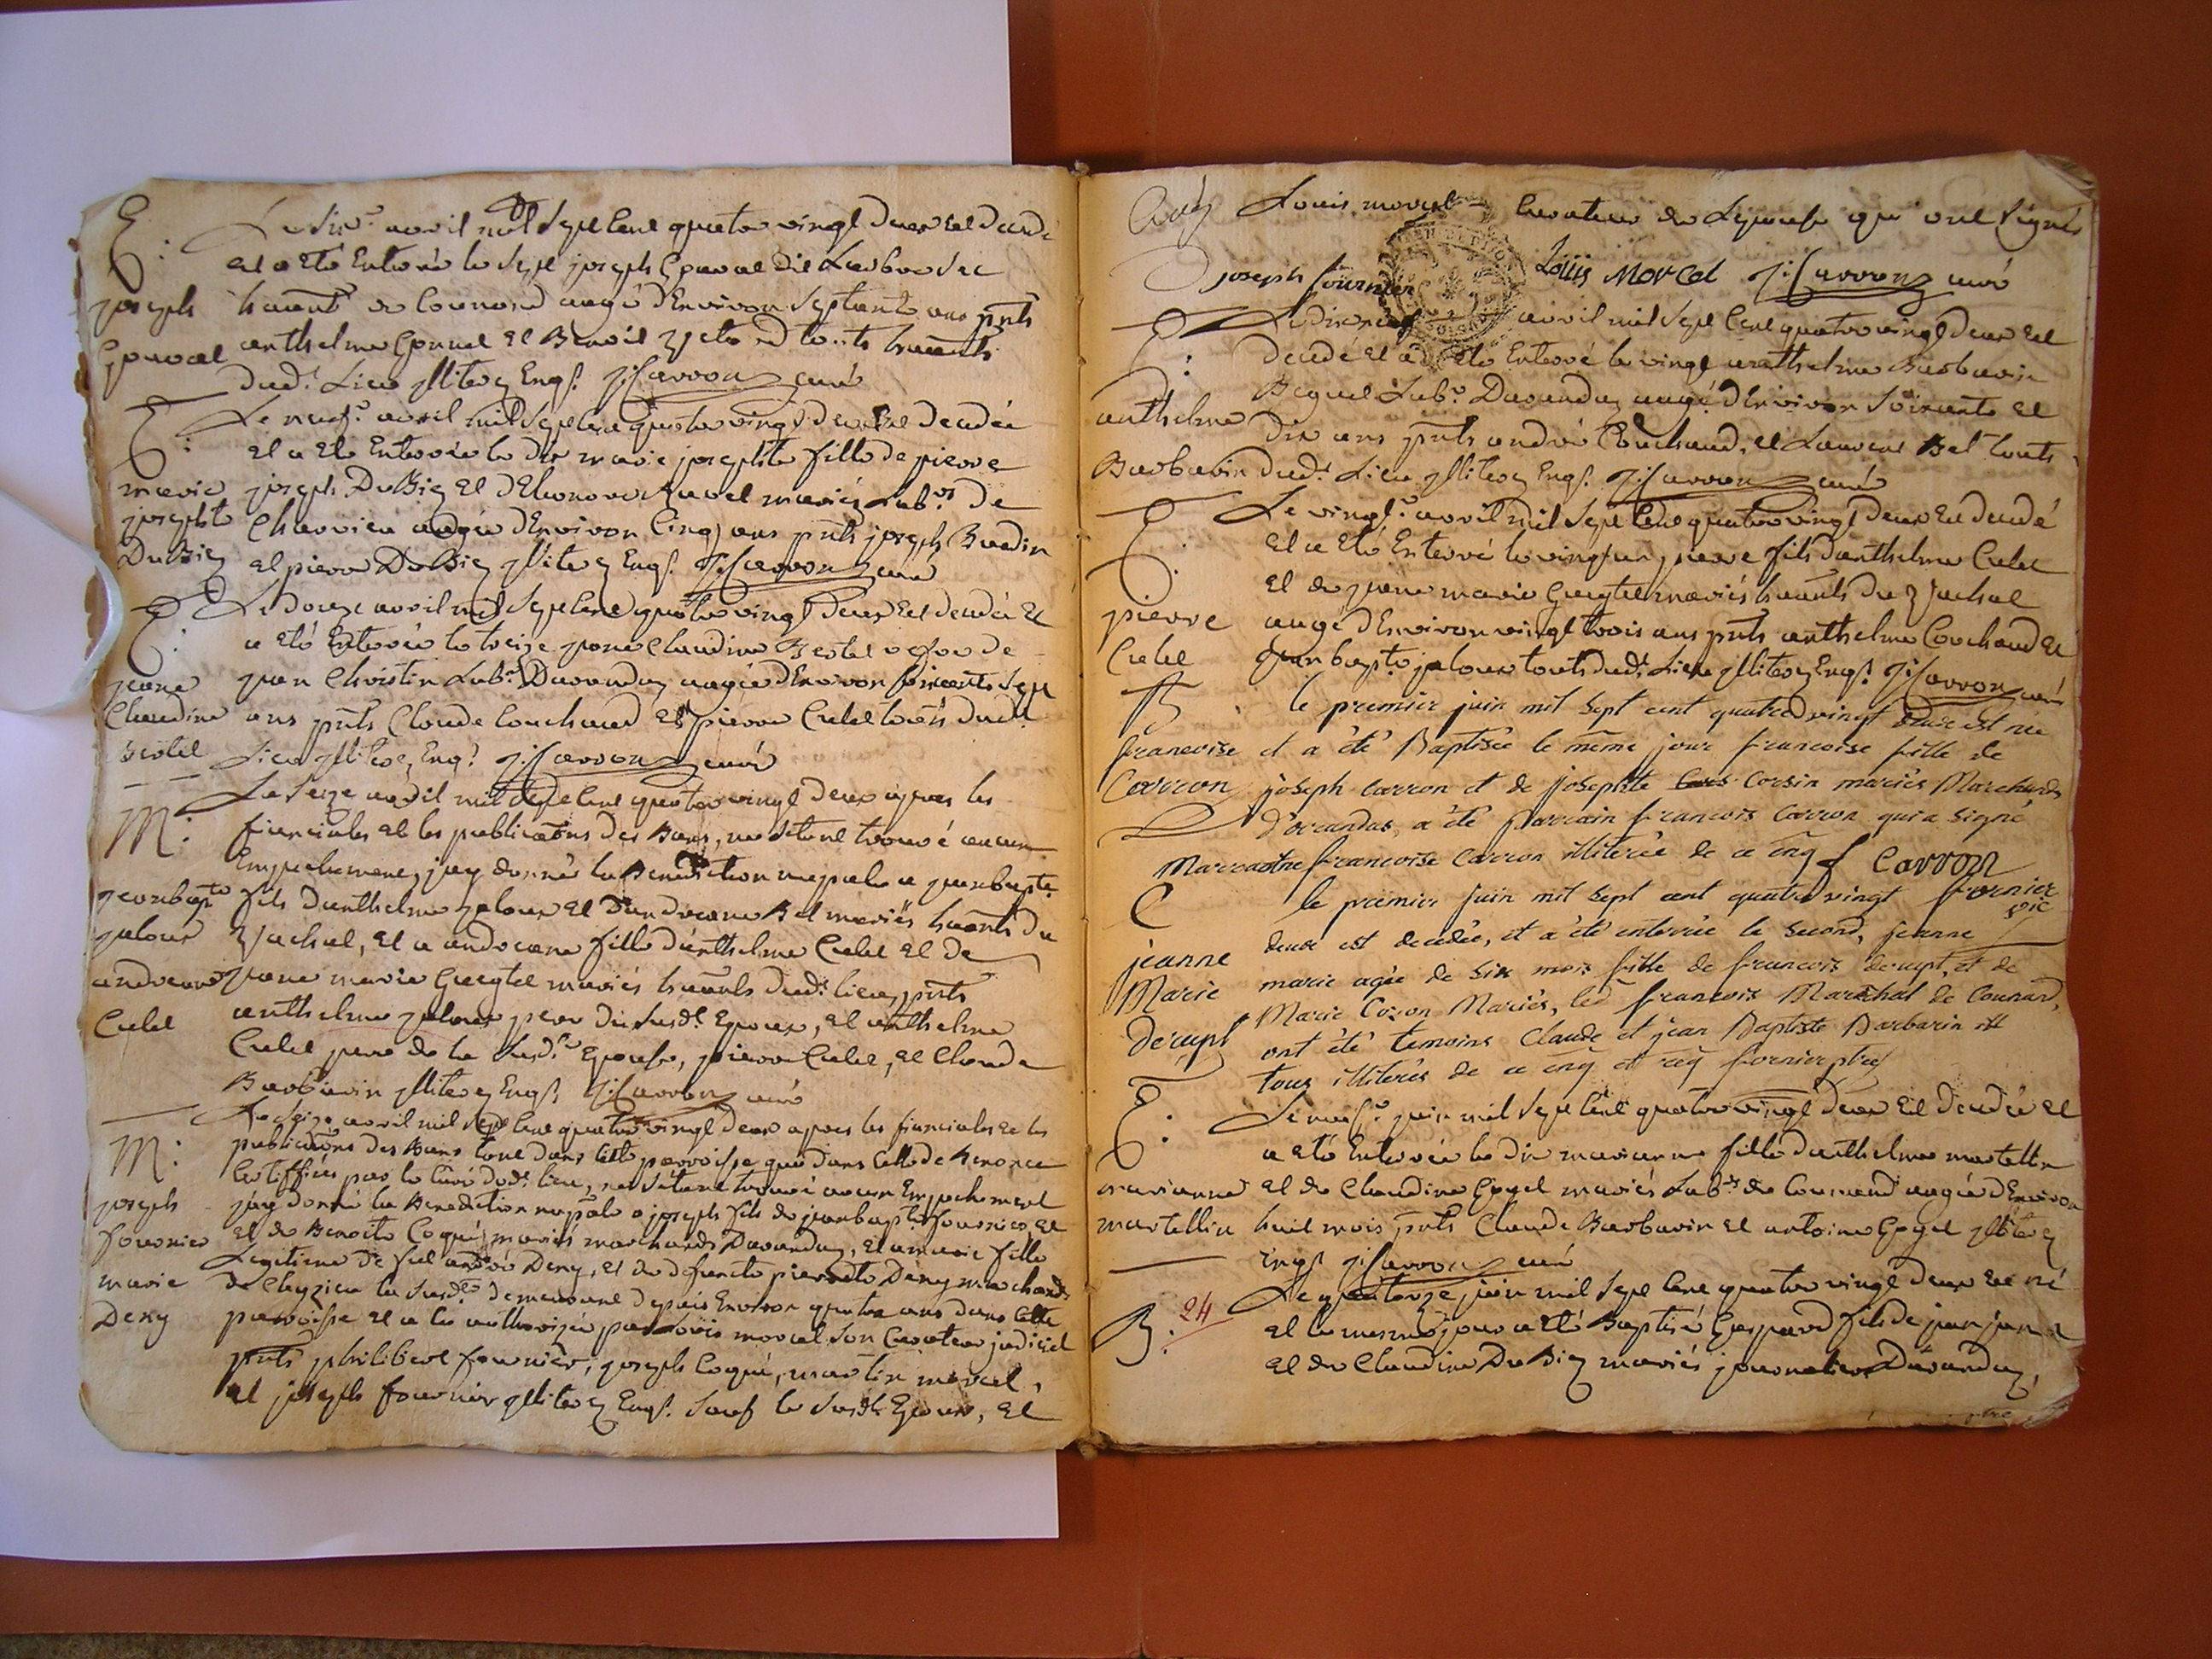 E.
joseph
Le six.e avril mil Sept Cent quatre vingt deux est decedé
et a eté Enterré le Sept joseph
haānt de Counand aagé d'Environ Septante ans pñts
anthelme et Benoit touts haānts
dud.t Lieu jlliterez Enq.s J: Carron curé
E.
marie
josephte
DuBiez
Le neuf.e avril mil Sept Cent quatre vingt deux est decedée
et a eté Enterrée le dix marie josephte fille de pierre
joseph DuBiez et d'Eleonore Ravel mariés Lab.rs de
Charvieu aagée d'Environ Cinq ans pñts joseph Baudin
et pierre DuBiez jlliterez Enq.s J: Carron curé
E.
jeane
Claudine
Le douze avril mil Sept Cent quatre vingt deux est decedée et
a eté Enterrée le treize jeane Claudine veufve de
jean Christin Lab.r Davanduz aagée d'Environ soixante Sept
ans pñts Claude Couchoud et pierre Culet touts dud.t
Lieu jlliterez Enq.s J: Carron curé
M:
jeanbapte
jaloux
andreane
Culet
Le Seize avril mil Sept Cent quatre vingt deux apres les
fianciales et les publications des Bans, ne s'etant trouvé aucun
Empechement, j'ay donné la Benediction nuptiale a jeanbapte
fils d'anthelme jaloux et d'andreane Bel mariés haānts du
Zjachat, et a andreane fille d'anthelme Culet et de
jeane marie Guigtet mariés haānts dud.t lieu, pñts
anthelme jaloux pere du susd.t Epoux, et anthelme
Culet pere de la susd.te Epouse, pierre Culet, et Claude
Barbarin jlliterez Enq.s J: Carron curé
M:
joseph
fournier
marie
Deny
Le Seize avril mil Sept Cent quatre vingt deux apres les fianciales et les
publications des Bans tant dans cette parroisse que dans celle de
Certiffiées par le Curé dud.t lieu, ne s'etant trouvé aucun Empechement
j'ay donné la Benediction nuptiale a joseph fils de jeanbapte fournier, et
et de Benoite Coqué, mariés marchands Davanduz, et a marie fille
Legitime de feu andré Deny, et de defuncte pierrette Deny marchands
de Cheyzieu la susd.te demeurant depuis Environ quatre ans dans cette
parroisse et a lui authorisée par Loüis morcel son Curateur judiciel
pñts philibert fournier, joseph Coqué, martin morcel,
et joseph fournier jlliterez Enq.s Sauf le susd.t Epoux, et
Louis morcel Curateur de L'epouse qui ont signés
joseph fournier Loüis Morcel J: Carron curé
E.
anthelme
Barbarin
Le dixneuf avril mil Sept Cent quatre vingt deux est
decedé et a eté Enterré le vingt anthelme Barbarin
Lab.r Davanduz aagé d'Environ Soixante et
dix ans pñts andré Couchoud, et Laurent Bel touts
dud.t Lieu jlliterez Enq.s J: Carron curé
E.
pierre
Culet
Le vingt.e avril mil Sept Cent quatre vingt deux est decedé
et a eté Enterré le vingt un pierre fils d'anthelme Culet
et de jeane marie Guigtet mariés haānts du Zjachat
aagé d'Environ vingt trois ans pñts anthelme Couchoud et
jeanbapte jaloux touts dud.t Lieu jlliterez Enq.s J: Carron curé
B
francoise
Carron
le premier juin mil sept cent quatre vingt deux est née
et a été Baptisée le même jour francoise fille de
joseph carron et de josephte Corsin mariés Marchands
d'avandas, a été parrain francois Carron qui a signé
Marraine francoise Carron illiterée de ce enq f Carron
fornier
vic
C
jeanne
Marie
derupt
le premier juin mil sept cent quatre vingt
deux est decedée, et a été enterrée le second, jeanne
marie agée de six mois fille de francois derupt, et de
Marie Cozon Mariés, led francois Maréchal de Counand,
ont été temoins Claude et jean Baptiste Barbarin
tous illiterés de ce enq et req fornier ptre
E.
marianne
martellin
Le neuf.e juin mil Sept Cent quatre vingt deux est decedée et
a eté Enterrée le dix marianne fille d'anthelme martellin
et de Claudine mariés Lab.rs de Counand aagée d'Environ
huit mois pñts Claude Barbarin et antoine jlliterez
Enq.s J: Carron curé
B. 24
Le quatorze juin mil Sept Cent quatre vingt deux est né
et le mesme jour a eté Baptisé Gaspard fils de jean
et de Claudine DuBiez mariés journaliers Davanduz,